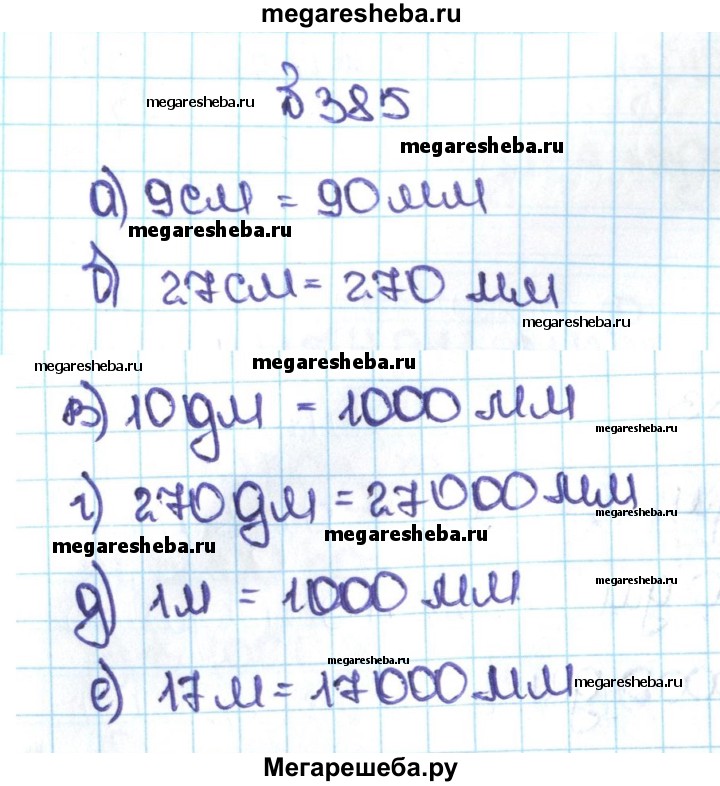 megaresheba.ru
№ 385
megaresheba.ru
megaresheba.ru
а) 9см = 90мм
megaresheba.ru
б) 27см = 270 мм
megaresheba.ru
megaresheba.ru
megaresheba.ru
в) 10дм = 1000 мм
megaresheba.ru
г) 270дм = 27000мм
megaresheba.ru
megaresheba.ru
megaresheba.ru
д) 1м = 1000 мм
megaresheba.ru
megaresheba.ru
е) 17м = 17000мм
megaresheba.ru
Мегарешеба.ру